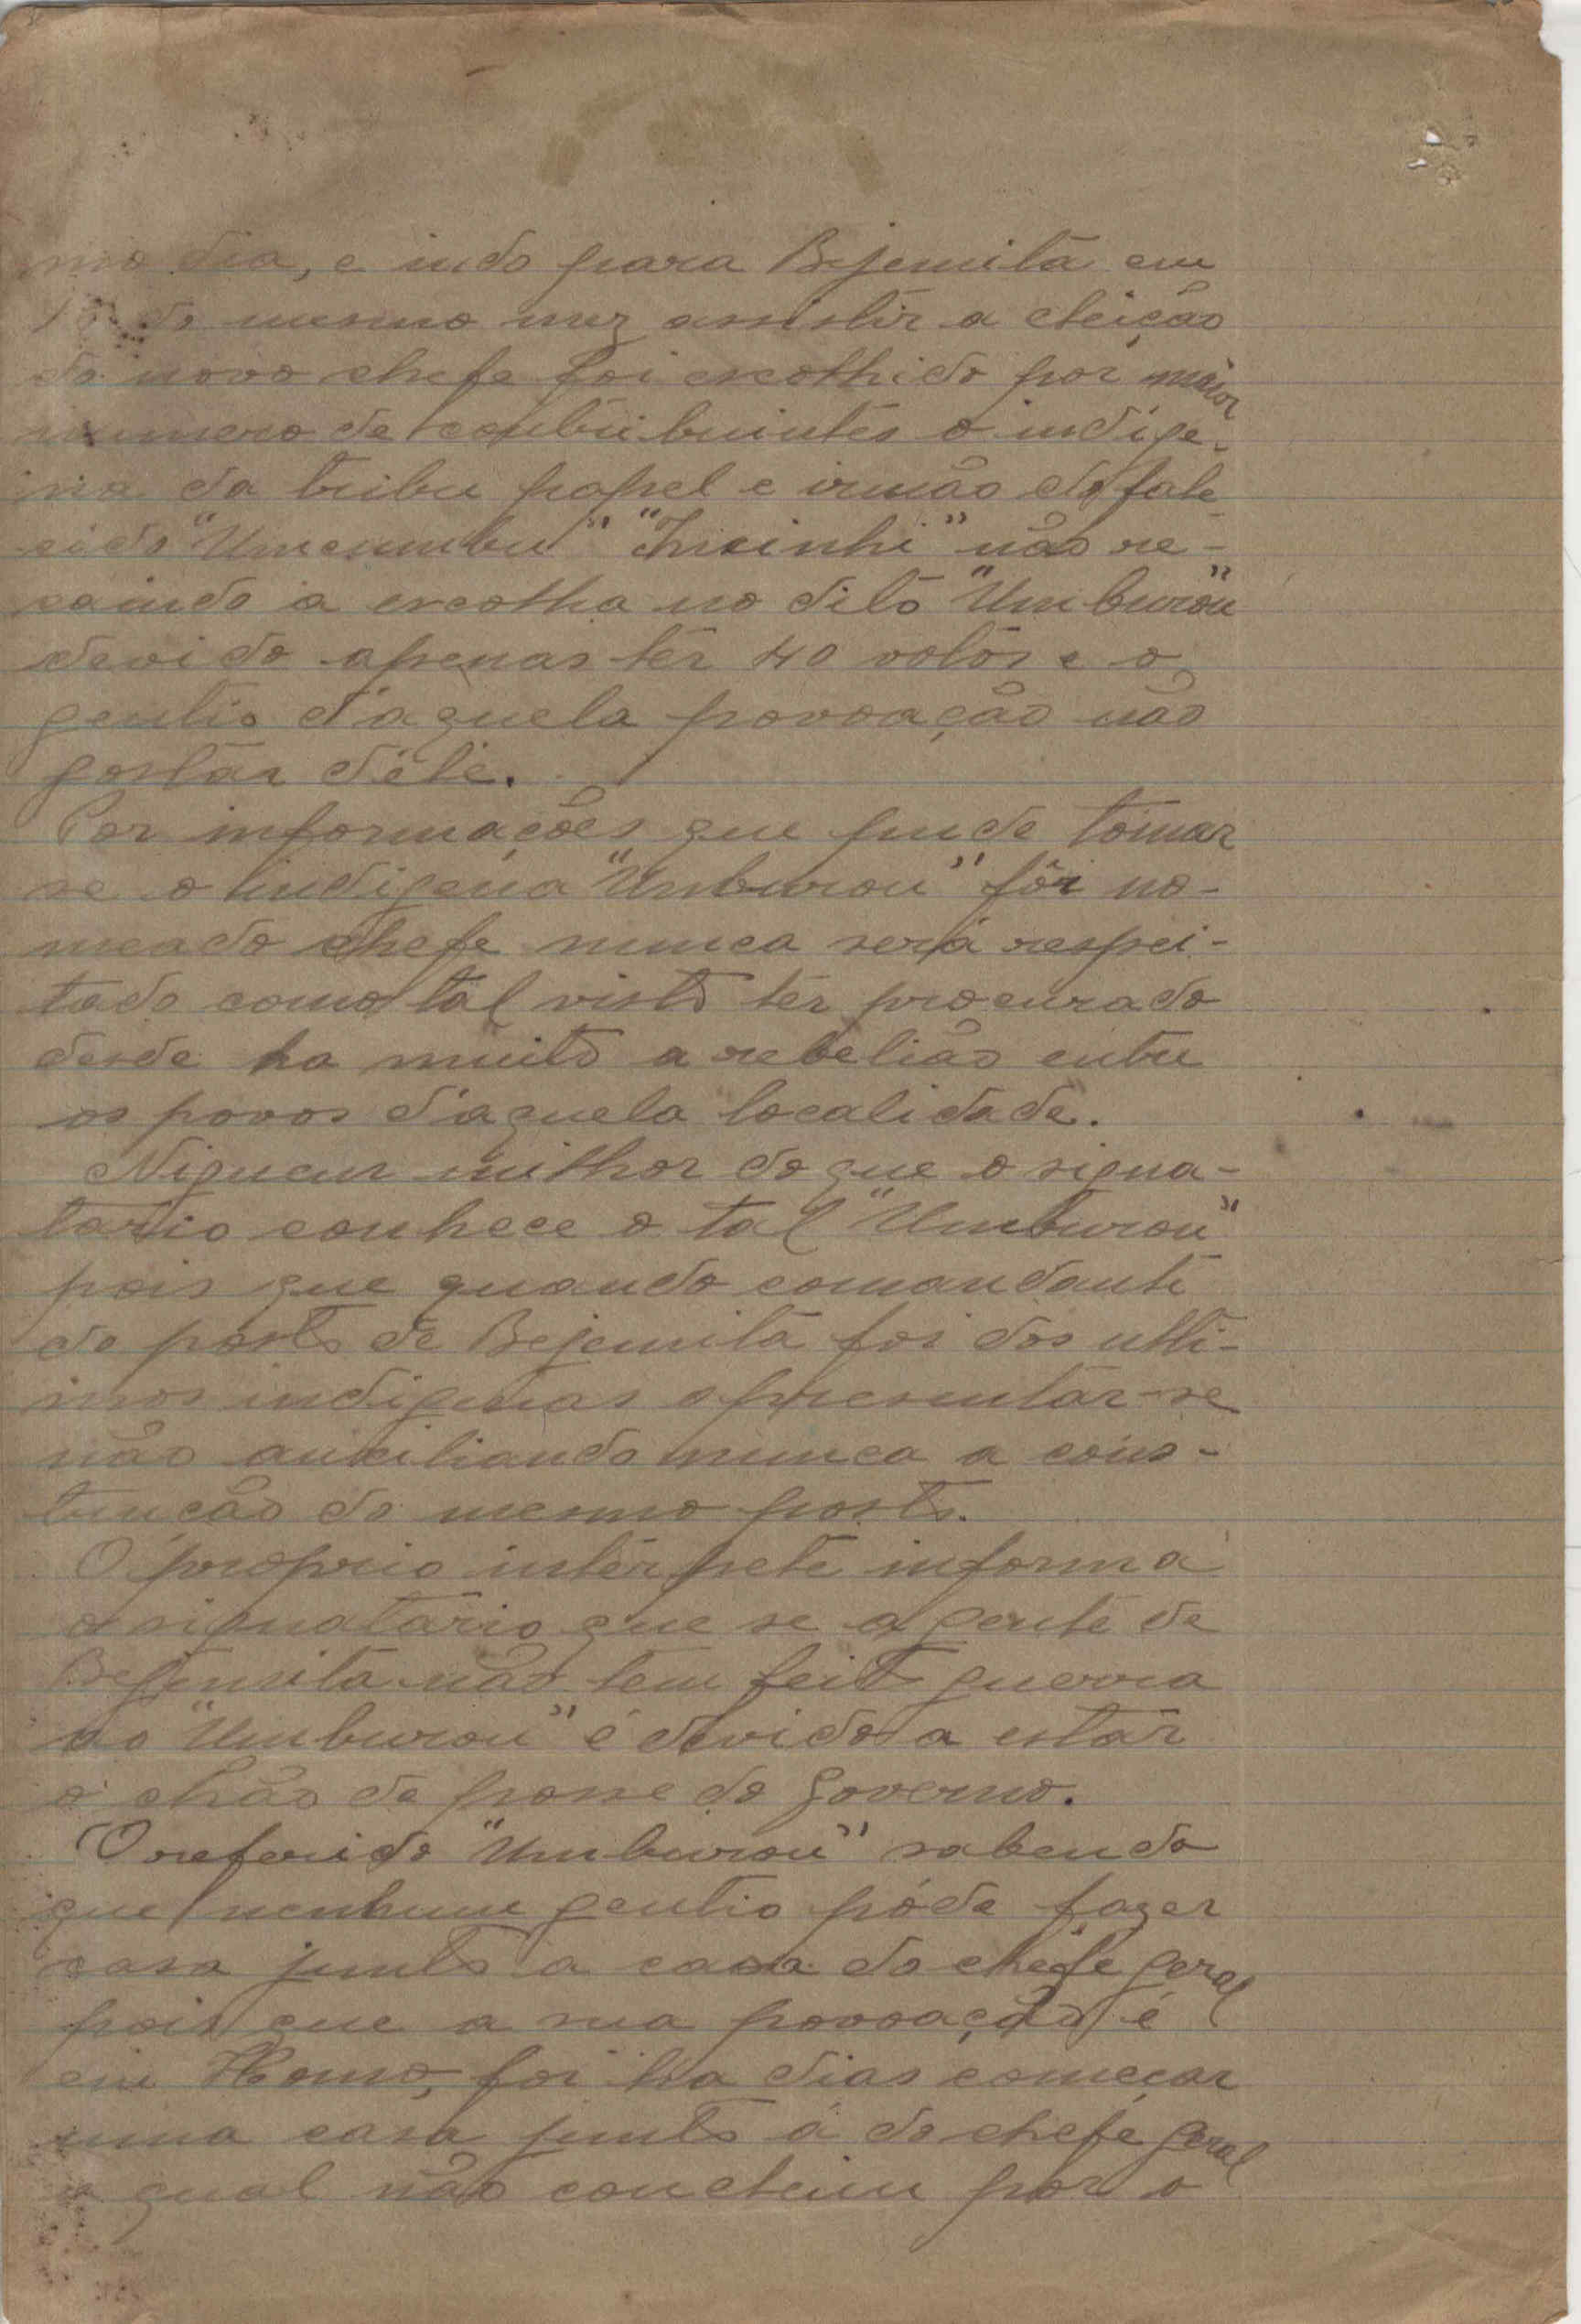 mo dia, e indo para Bejemitã em
do mesmo mez assistir a eleição
do novo chefe foi escolhido por maior
numero de contribuintes o indige-
na da tribu papel e irmão do fale-
cido "Umcumbu" não re-
caindo a escolha no dito "Umburou"
devido apenas ter 40 votos e o
gentio d'aquela povoação não
gostar d'ele.
Por informações que pude tomar
se o indigena "Umburou" fôr no-
meado chefe nunca será respei-
tado como tal visto ter procurado
desde ha muito a rebelião entre
os povos d'aquela localidade.
Niguem milhor do que o signa-
tario conhece o tal "Umburou"
pois que quando comandante
do posto de Bejemitã foi dos ulti-
mos indigenas apresentar-se
não auxiliando nunca a cons-
trucão do mesmo posto.
O proprio interpete informa
o signatario que se a gente de
Bejemitã não tem feito guerra
ao "Umburou" é devido a estar
o chão de posse do Governo.
O referido "Umburou" sabendo
que nenhum gentio póde fazer
casa junto a casa do chefe geral
pois que a sua povoação é
em foi ha dias começar
uma casa junto á do chefe geral
a qual não concluiu por o